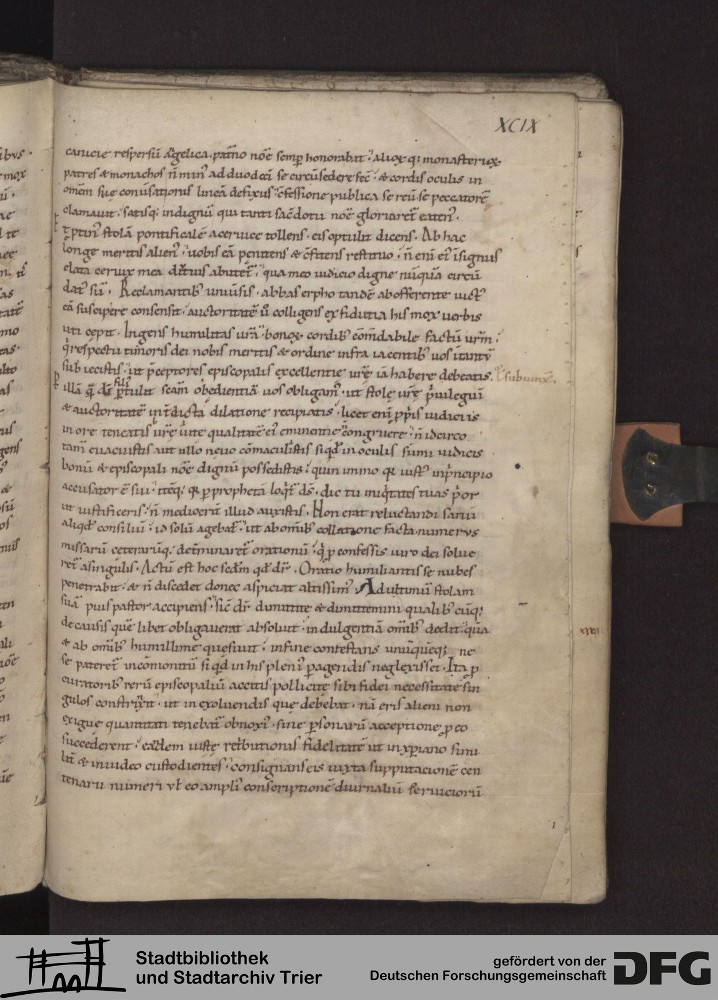 XCIX
canicie respersū angelica. pat͛no nōe semp honorabat; alioꝝ q; monasterioꝝ
patres & monachos n̄ min᷒ ad duodecī se circūsedere fec̄; & cordis oculis in
omēm sue conv̄sationis lineā defixus c̄fessione publica se reū se peccatorē
clamauit; satisq; indignū qui tanti sac̄dotii nōe gloriaret̄ eaten᷒.
stolā pontificalē a ceruice tollens. eis optulit dicens. Ab hac
longe meritis alien᷒; uobis eā penitens & c̄fitens restituo; n̄ eni ei᷒ īsignis
elata ceruix mea abutet̄; qua meo iudicio digne nūquā circū
dat᷒ sū. Reclamantib᷒ uniūsis. abbas erpho tandē ab offerente uict᷒
eā suscipere consensit. auctoritatē ū colligens ex fidutia his mox uerbis
uti cepit. Ingens humilitas urā. bonoꝝ cordib᷒ com̄dabile factū urm̄;
respectu timoris dei nobis meritis & ordine infra iacentib᷒ uos
sub iecistis. ut p̄ceptores episcopalis excellentie urē iā habere debeatis.
illā q̄ d̄i fili᷒ ptulit scām obedientiā uos obligam᷒. ut stole urē p̄uilegiū
& auctoritatē dilatione recipiatis. licet eni ppis iudiciis
in ore teneatis urē uite qualitatē ei᷒ eminentie congruere. n̄ idcirco
tam̄ euacuistis aut ullo neuo cōmaculastis siq̄d in oculis sūmi iudicis
bonū & episcopali nōe dignū possedistis. quin immo q̄ iust᷒ in p̄ncipio
accusator ē sui. itēq; q̄ p prophetā loq̄t ds̄. dic tu iniq̄tates tuas p̄or
ut iustificeris. n̄ mediocrū illud auxistis. Non erat reluctandi saniū
aliq̄d consiliū. id solū agebat̄. ut ab omib᷒ collatione facta. numerus
missarū ceterarūq; det̄minaret̄ orationū. q̄ p confessis uiro dei solue
ret̄ a singulis. Actū est hoc scdm qd̄ dr̄. Oratio humiliantis se nubes
penetrabit. & n̄ discedet donec aspiciat altissim᷒. Ad ultimū stolam
suā pius pastor accipiens. sic̄ dr̄ dimittite & dimittemini qualib᷒ cūq;
de causis quē libet obligauerat absoluit. indulgentiā omīb᷒ dedit. quā
& ab omīb᷒ humillime quesiuit. in fine contestans unūquēq; ne
se pateret̄ incōmonitū siq̄d in his plen᷒ pagendis neglexisset. Ita p
curatorib᷒ rerū episcopaliū accitis pollicite sibi fidei necessitate sin
gulos constrīxit. ut in exoluendis que debebat. nā eris alieni non
exigue quantitati tenebat̄ obnoxi᷒. sine psonarū acceptione p eo
succederent. eandem iuste retributionis fidelitatē ut in xpiano simi
& in iudeo custodientes. consignans eis iuxta supputacionē cen
tenarii numeri vl̄ eo ampli᷒ conscriptionē diurnaliū seruiciorū
Stadtbibliothek
und Stadtarchiv Trier
gefördert von der
Deutschen Forschungsgemeinschaft
DFG